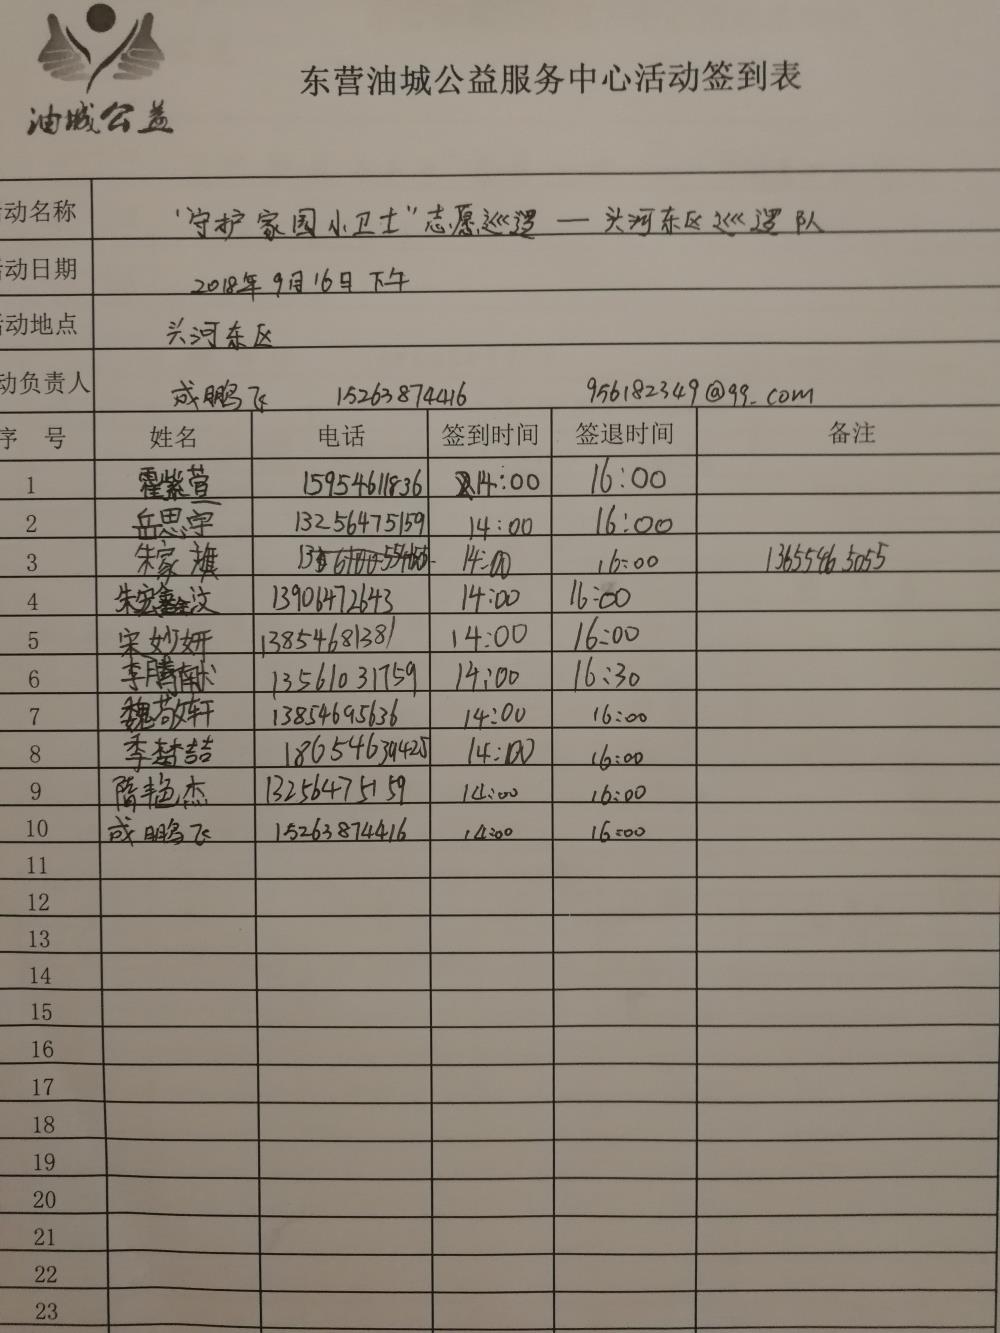 油城公益
东营油城公益服务中心活动签到表
活动名称 "守护家园小卫士"志愿巡逻 — 头河东区巡逻队
活动日期 2018年9月16日下午
活动地点 头河东区
活动负责人 成鹏飞 15263874416 956182349@qq.com
序号 姓名 电话 签到时间 签退时间 备注
1 霍紫萱 15954611836 14:00 16:00
2 岳思宇 13256475159 14:00 16:00
3 朱家旗 14:00 16:00 13655465055
4 朱宏鑫汶 13906472643 14:00 16:00
5 宋妙妍 13854681381 14:00 16:00
6 李腾 13561031759 14:00 16:30
7 魏敬轩 13854695636 14:00 16:00
8 李梦喆 18654639425 14:00 16:00
9 隋艳杰 13256475159 14:00 16:00
10 成鹏飞 15263874416 14:00 16:00
11
12
13
14
15
16
17
18
19
20
21
22
23